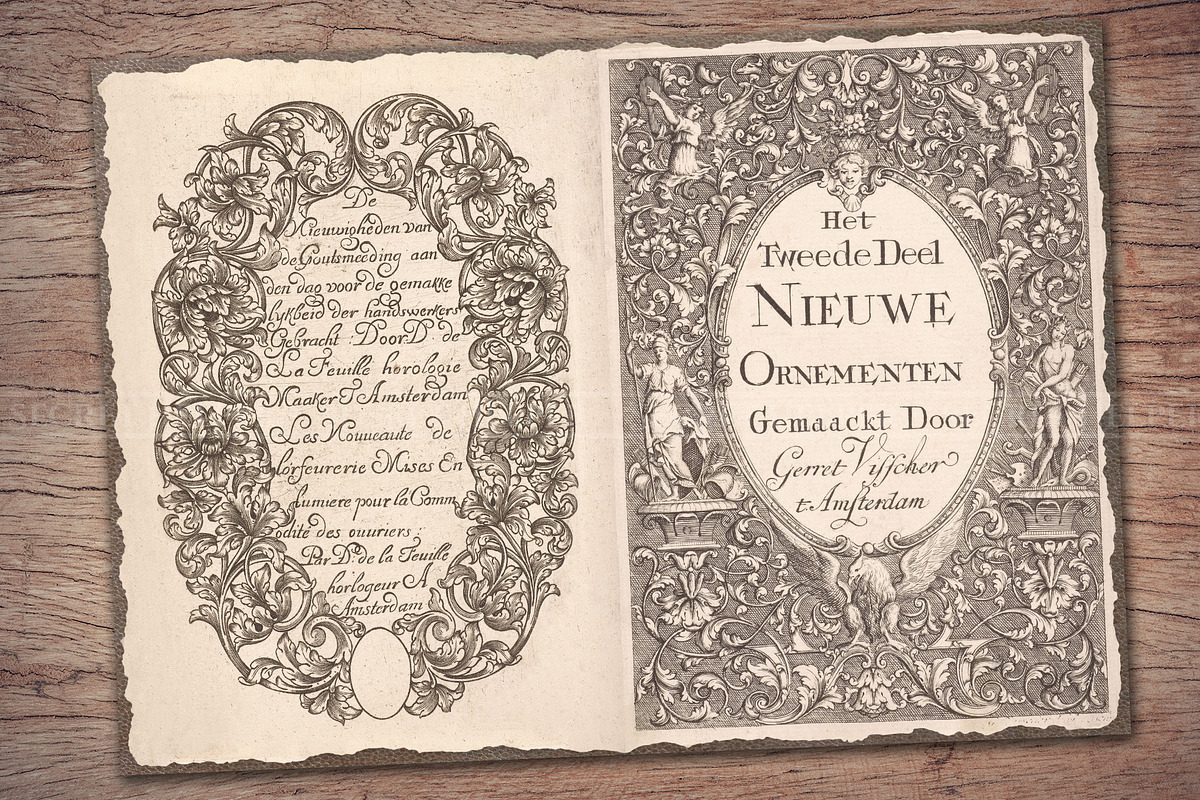 De
Nieuwigheden van
de Goutsmeeding aan
den dag voor de gemakke
lykheid der handswerkers
Gebracht : Door D de
La Feuille horologie
Maaker T Amsterdam
Les Nouueaute de
lorfeurerie Mises En
lumiere pour la Comm
odité des ouuriers ;
Par D. de la Feuille
horlogeur A
Amsterdam
Het
Tweede Deel
NIEUWE
ORNEMENTEN
Gemaackt Door
Gerret Visscher
t Amsterdam